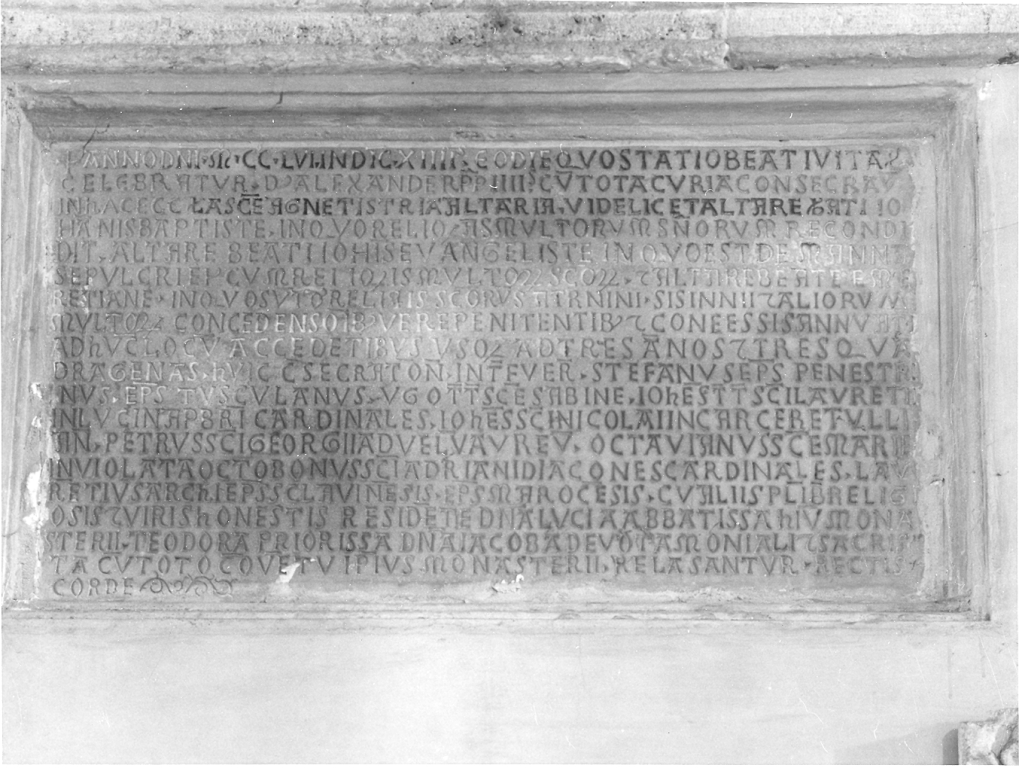 ANNO DNI M CC LVI INDIC XIIII EODIE QVO STATIO BEATI VITAL
CELEBRATVR D ALEXANDER PP IIII CV TOTA CVRIA CONSECRAV
IN HAC ECCLA SCE AGNETIS TRIA ALTARIA VIDELICET ALTARE BATI IO
HANIS BAPTISTE IN QVO RELIQAS MVLTORVM SNORVM RECONDI
DIT ALTARE BEATI IOHIS EVANGELISTE IN QVO EST DE MANNA
SEPVLCRI EI CVM RELIQIS MVLTOR SCOR ALTARE BEATE EME
RETIANE IN QVO SVT RELIQIS SCORV SATRNINI SISINNII ALIORVM
MVLTOR CONCEDENS OIB VERE PENITENTIB CONFESSIS ANNVATI
ADHVC LOCV ACCEDETIBVS VSQ AD TRES ANOS TRES QVA
DRAGENAS HVIC CSECRATON INTFVER STEFANVS EPS PENESTRI
NVS EPS TVSCVLANVS VGO TT SCE SABINE IOHES TT SCI LAVRETI
IN LVCINA PBRI CARDINALES IOHES SCI NICOLAI IN CARCERE TVLLI
AN PETRVS SCI GEORGII AD VELV AVREV OCTAVIANVS SCE MARIE
INVIOLATA OCTOBONVS SCI ADRIANI DIACONES CARDINALES LAV
RETIVS ARCHIEPS SCLAVINESIS EPS MAROCESIS CV ALIIS PLIB RELIG
OSIS VIRIS HONESTIS RESIDETE DNA LVCIA ABBATISSA HIV MONA
STERII TEODORA PRIORISSA DNA IACOBA DEVOTA MONIALI SACRIS
TA CV TOTO COVETV IPIVS MONASTERII RELASANTVR RECTIS
CORDE